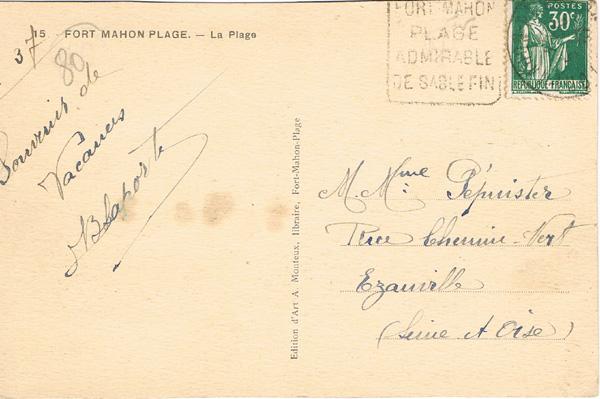 15 FORT MAHON PLAGE. — La Plage
37
80
Souvenir de
Vacances
Laporte
Edition d'Art A. Monteux, libraire, Fort-Mahon-Plage
FORT MAHON
PLAGE
ADMIRABLE
DE SABLE FIN
POSTES
30c
REPUBLIQUE FRANÇAISE
M. Mme
Rue Chemin-Vert
Ezanville
(Seine et Oise)